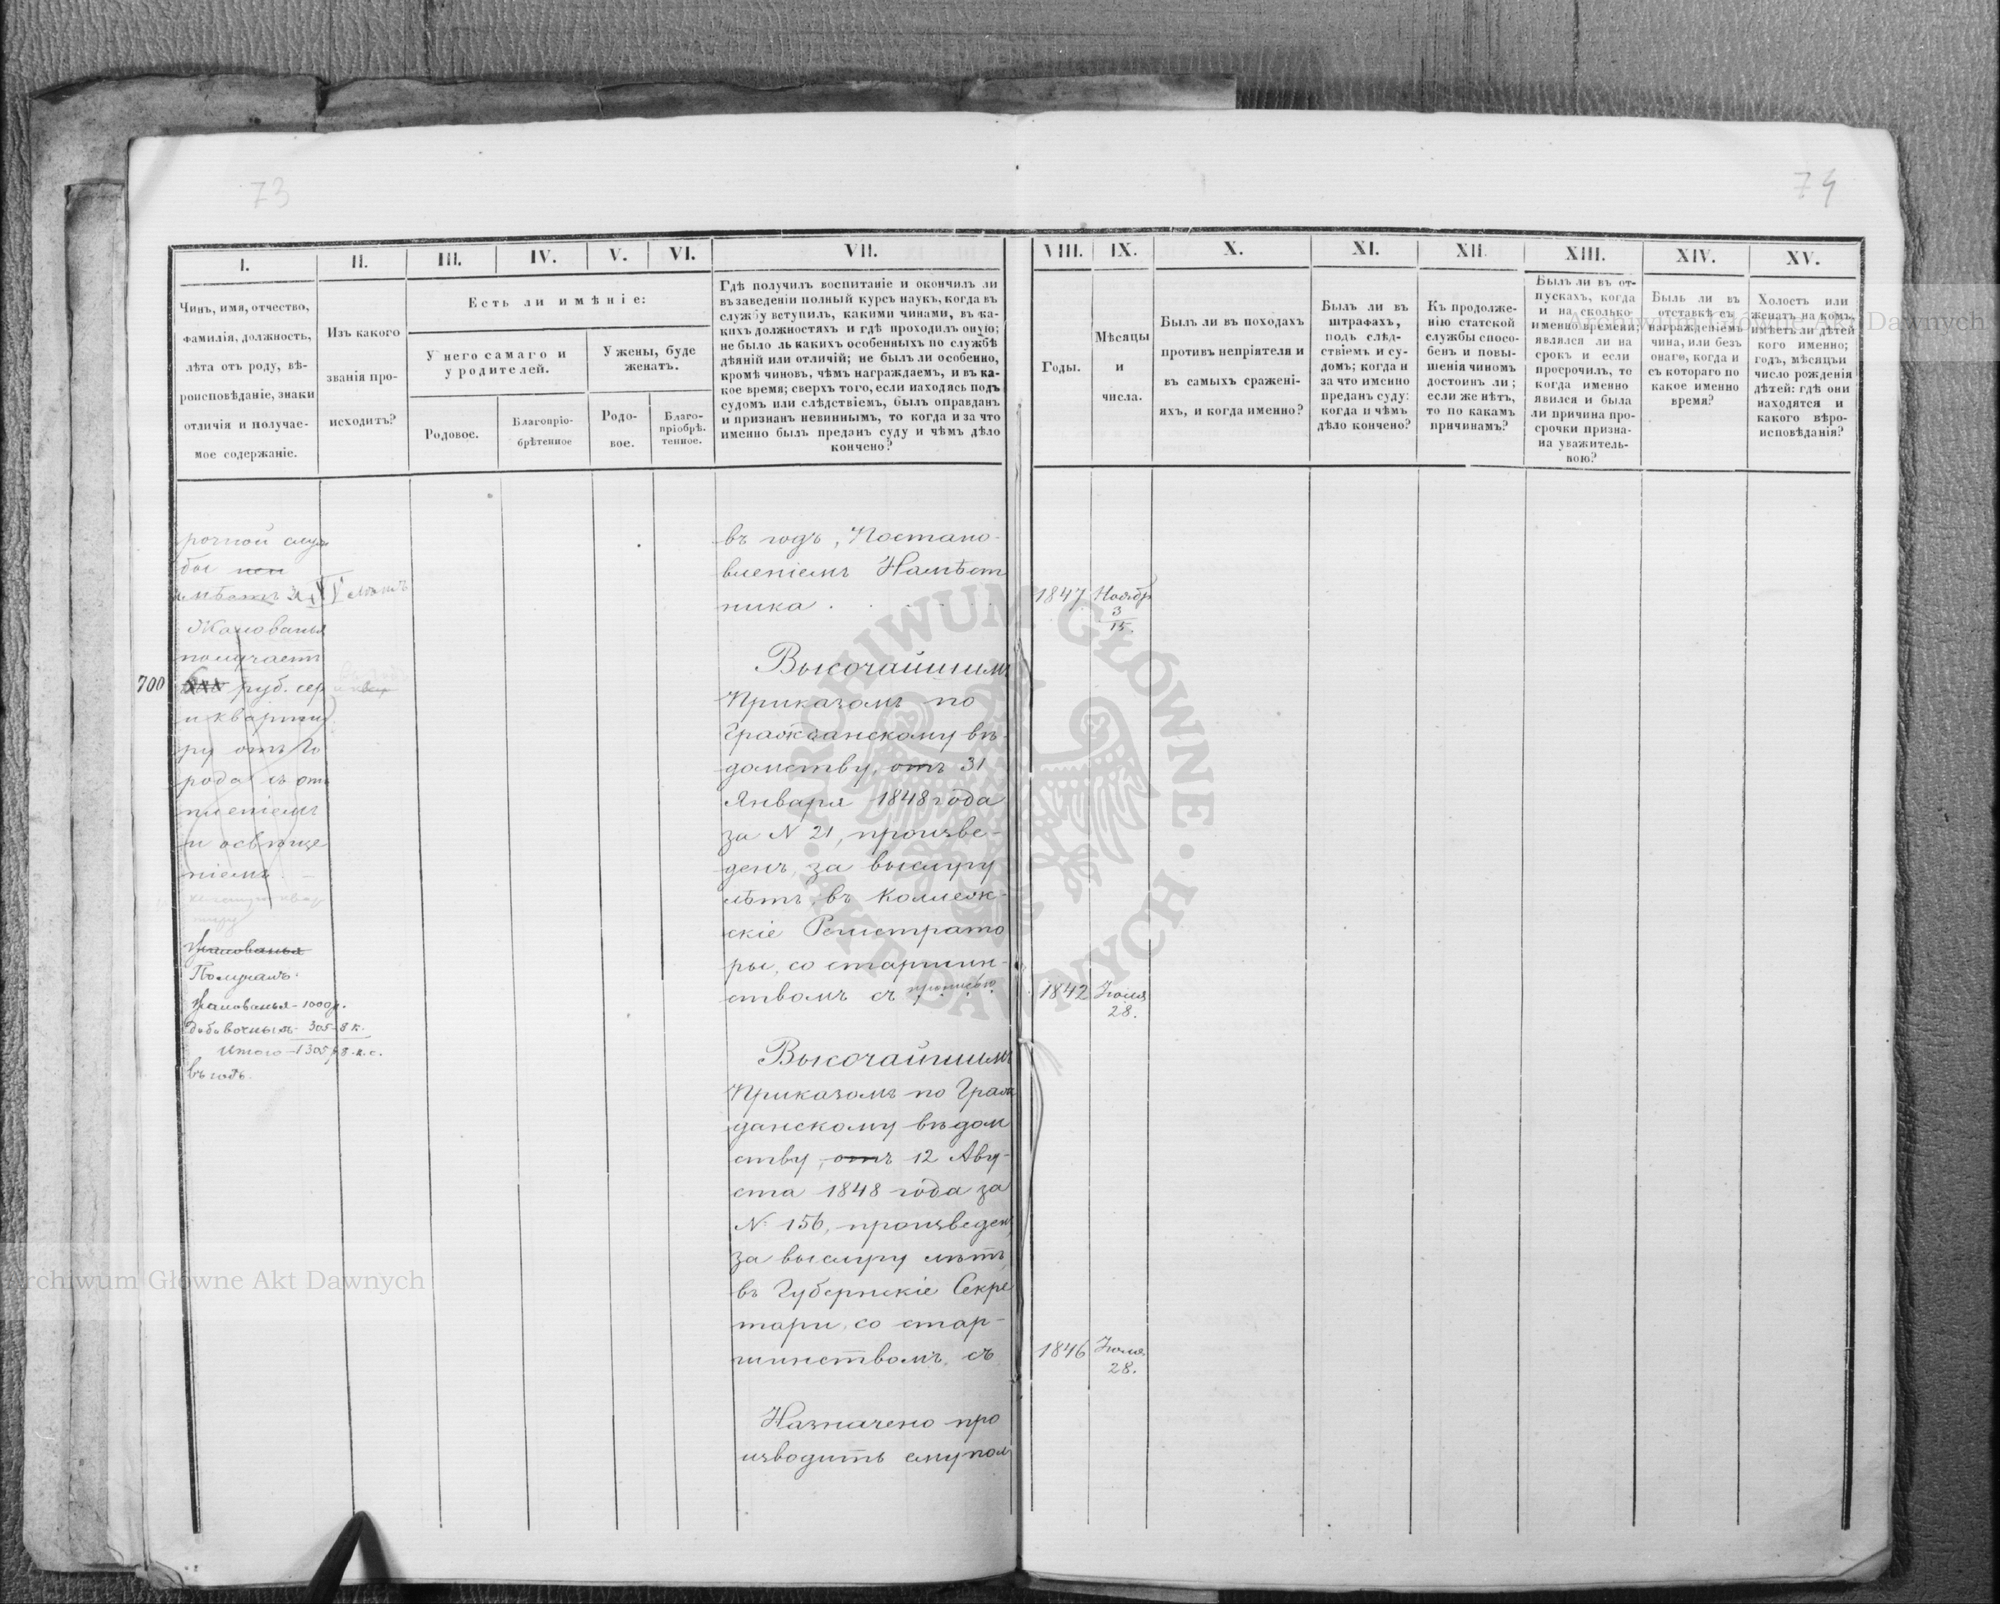 73
74
I.
II.
III.
IV.
V.
VI.
VII.
VIII.
IX.
X.
XI.
XII.
XIII.
XIV.
XV.
Чинъ, имя, отчество,
фамилія, должность,
лѣта отъ роду, вѣ-
роисповѣданіе, знаки
отличія и получае-
мое содержаніе.
Изъ какого
званія про-
исходитъ?
Есть ли имѣніе:
У него самаго и
родителей.
У жены, буде
женатъ.
Родовое.
Благопріо-
брѣтенное
Родо-
вое.
Благо-
пріобрѣ-
тенное.
Гдѣ получилъ воспитаніе и окончилъ ли
въ заведеніи полный курсъ наукъ, когда въ
службу вступилъ, какими чинами, въ ка-
кихъ должностяхъ и гдѣ проходилъ оную;
не было ль какихъ особенныхъ по службѣ
дѣяній или отличій; не былъ ли особенно,
кромѣ чиновъ, чѣмъ награждаемъ, и въ ка-
кое время; сверхъ того, если находясь подъ
судомъ или слѣдствіемъ, былъ оправданъ
и признанъ невиннымъ, то когда и за что
именно былъ преданъ суду и чѣмъ дѣло
кончено?
Годы.
Мѣсяцы
и
числа.
Былъ ли въ походахъ
противъ непріятеля и
въ самыхъ сражені-
яхъ, и когда именно?
Былъ ли въ
штрафахъ,
подъ слѣд-
ствіемъ и су-
домъ; когда и
за что именно
преданъ суду:
когда и чѣмъ
дѣло кончено?
Къ продолже-
нію статской
службы спосо-
бенъ и повы-
шенія чиномъ
достоинъ ли;
если же нѣтъ,
то по какамъ
причинамъ?
Былъ ли въ от-
пускахъ, когда
и на сколько
именно времени;
являлся ли на
срокъ и если
просрочилъ, то
когда именно
явился и была
ли причина про-
срочки призна-
на уважитель-
ною?
Былъ ли въ
отставкѣ съ
награжденіемъ
чина, или безъ
онаго, когда и
съ котораго по
какое именно
время?
Холостъ или
женатъ на комъ,
имѣетъ ли дѣтей
кого именно;
годъ, мѣсяцъ и
число рожденія
дѣтей: гдѣ они
находятся и
какого вѣро-
исповѣданія?
рочной служ
бы
Жалованья
получаетъ
700 руб. сер
и кварти
ру отъ го
рода съ ото
пленіемъ
и освѣще
ніемъ.
Жалованья
Получаетъ:
Жалованья - 1000 р.
Добавочныхъ - 305 - 8 к.
Итого - 1305, 8. к. с.
въ годъ.
въ годъ, Постано-
вленіемъ Намѣст
ника.
1847 Ноябр
3
15.
Высочайшимъ
Приказомъ по
Гражданскому вѣ-
домству, отъ 31
Января 1848 года
за N 21, произве-
денъ, за выслугу
лѣтъ, въ Коллеж-
скіе Регистрато
ры, со старшин-
ствомъ съ
1842 Іюля
28.
Высочайшимъ
Приказомъ по Граж
данскому вѣдом
ству, отъ 12 Авгу-
ста 1848 года за
N. 156, произведенъ,
за выслугу лѣтъ,
въ Губернскіе Секре
тари, со стар-
шинствомъ, съ
1846 Іюля
28.
Назначено про
изводить ему пол
ARCHIWUM GŁÓWNE AKT DAWNYCH
Archiwum Główne Akt Dawnych
Archiwum Główne Akt Dawnych